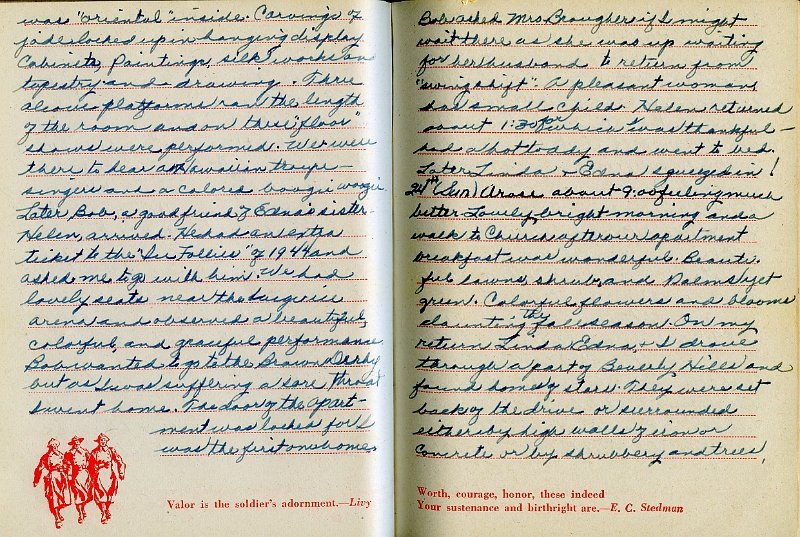 was "oriental" inside. Carvings of
jade locked up in hanging display
Cabinets, Paintings, silk works on
tapestry and drawing. Three
platforms ran the length
of the room and on these "floor"
shows were performed. We were
there to hear a Hawaiian troupe
singers and a colored boogie woogie.
Later, Bob, a good friend of Edna's sister
Helen, arrived. He had an extra
ticket to the "Ice Follies" of 1944 and
asked me to go with him. We had
lovely seats near the huge ice
arena and observed a beautiful,
colorful, and graceful performance.
Bob wanted to go to the Brown Derby
but as I was suffering a sore throat
I went home. The door of the apart-
ment was locked for I
was the first one home.
Valor is the soldier's adornment.—Livy
Bob asked Mrs Brougher if I might
wait there as she was up waiting
for her husband to return from
"swing shift". A pleasant woman,
has small child. Helen returned
about 1:30 for which I was thankful—
had a hot toddy and went to bed.
Later Linda & Edna squeezed in!
24th (Sun) Arose about 9:00 feeling much
better. Lovely, bright morning and a
walk to Church after our apartment
breakfast was wonderful. Beauti-
ful lawns, shrubs, and Palms yet
green. Colorful flowers and blooms
daunting the fall season. On my
return Linda, Edna, & I drove
through a part of Beverly Hills and
found homes of stars. They were set
back of the drive or surrounded
either by high walls of iron or
Concrete or by shrubbery and trees,
Worth, courage, honor, these indeed
Your sustenance and birthright are.—E. C. Stedman